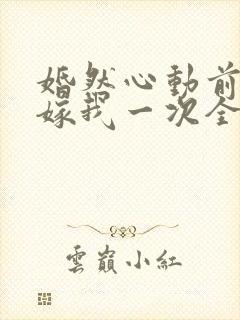 婚然心動前
嫁我一次全
雲巔小紅